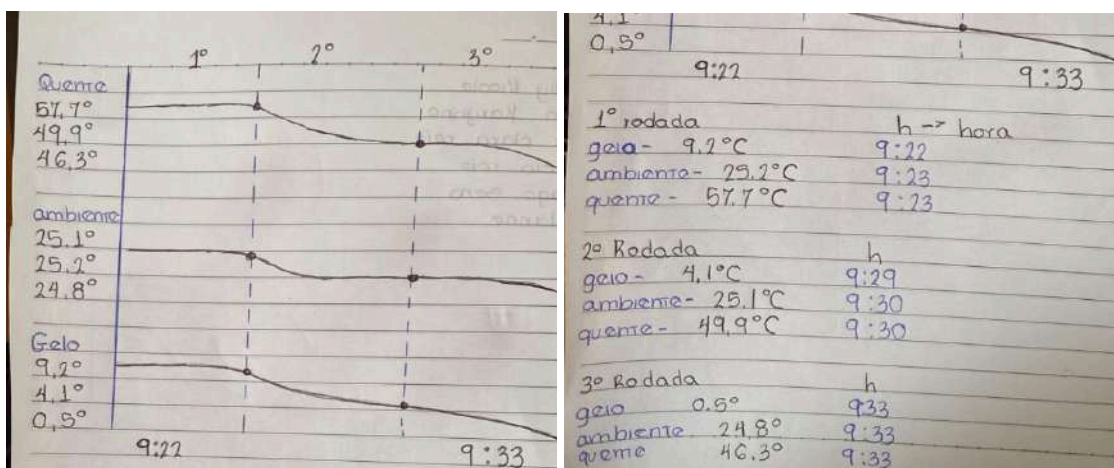 1° 2° 3°
Quente
57.7°
49.9°
46.3°
ambiente
25.1°
25.2°
24.8°
Gelo
9,2°
4,1°
0,5°
9:22 9:33
4,1°
0,5°
9:22 9:33
1° rodada h -> hora
gelo- 9.2°C 9:22
ambiente- 25.2°C 9:23
quente- 57.7°C 9:23
2° Rodada h
gelo- 4.1°C 9:29
ambiente- 25.1°C 9:30
quente- 49.9°C 9:30
3° Rodada h
gelo 0.5° 9:33
ambiente 24.8° 9:33
quente 46.3° 9:33